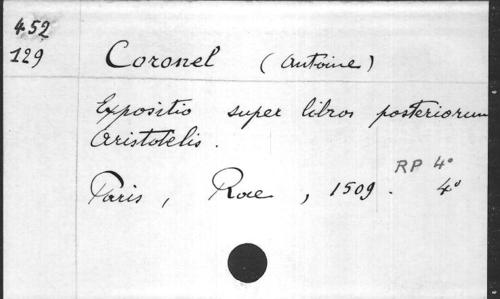 452
129
Coronel (Antoine)
Expositio super libros posteriorum
Aristotelis.
RP 4°
Paris, Roce, 1509. 4°